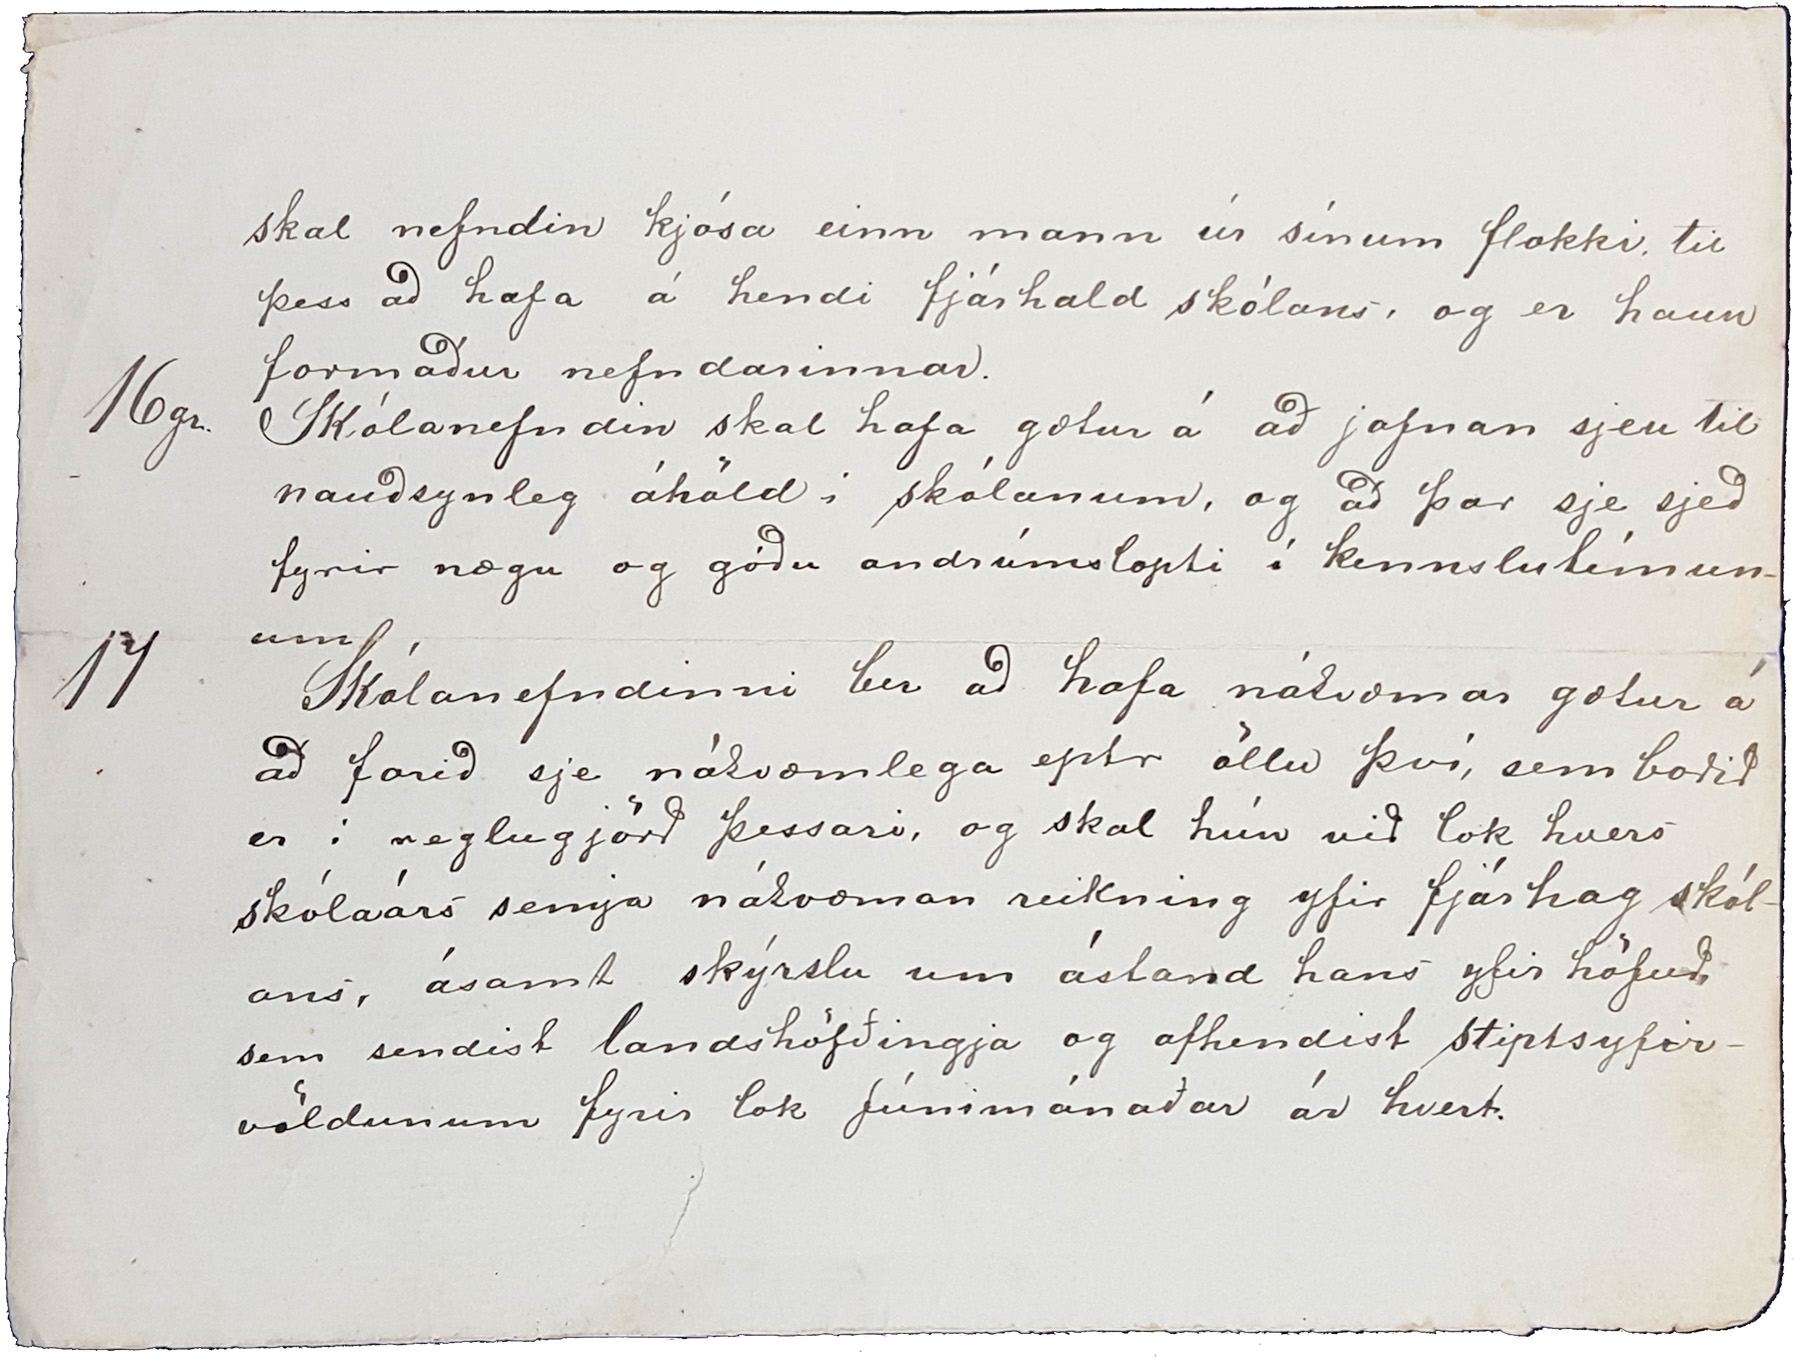 skal nefndin kjósa einn mann úr sínum flokki, til
þess að hafa á hendi fjárhald skólans, og er hann
formaður nefndarinnar.
16 gr. Skólanefndin skal hafa gætur á að jafnan sjeu til
nauðsynleg áhöld í skólanum, og að þar sje sjeð
fyrir nægu og góðu andrúmslopti í kennslutímun-
um.
17 Skólanefndinni ber að hafa nákvæmar gætur á
að farið sje nákvæmlega eptir öllu því, sem boðið
er í reglugjörð þessari, og skal hún við lok hvers
skólaárs semja nákvæman reikning yfir fjárhag skól-
ans, ásamt skýrslu um ástand hans yfir höfuð,
sem sendist landshöfðingja og afhendist stiptsyfir-
völdunum fyrir lok júnímánaðar ár hvert.